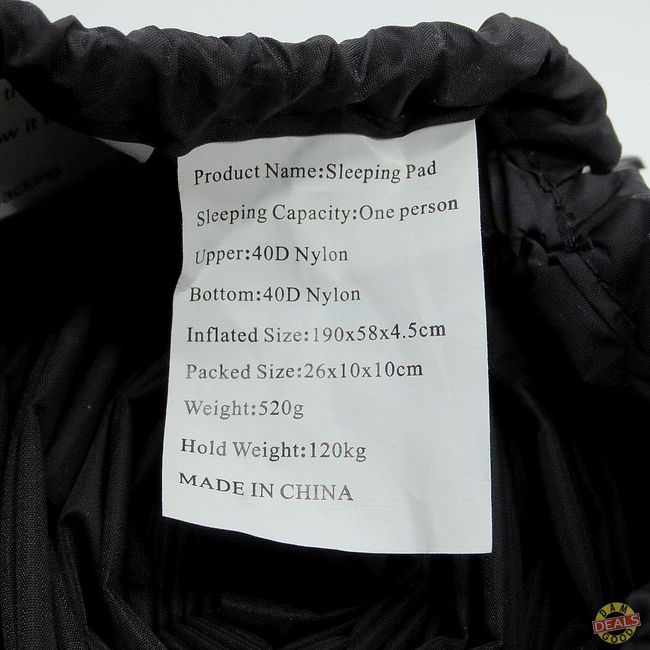 ow it
acking
Product Name:Sleeping Pad
Sleeping Capacity:One person
Upper:40D Nylon
Bottom:40D Nylon
Inflated Size:190x58x4.5cm
Packed Size:26x10x10cm
Weight:520g
Hold Weight:120kg
MADE IN CHINA
DAM
DEALS
GOOD